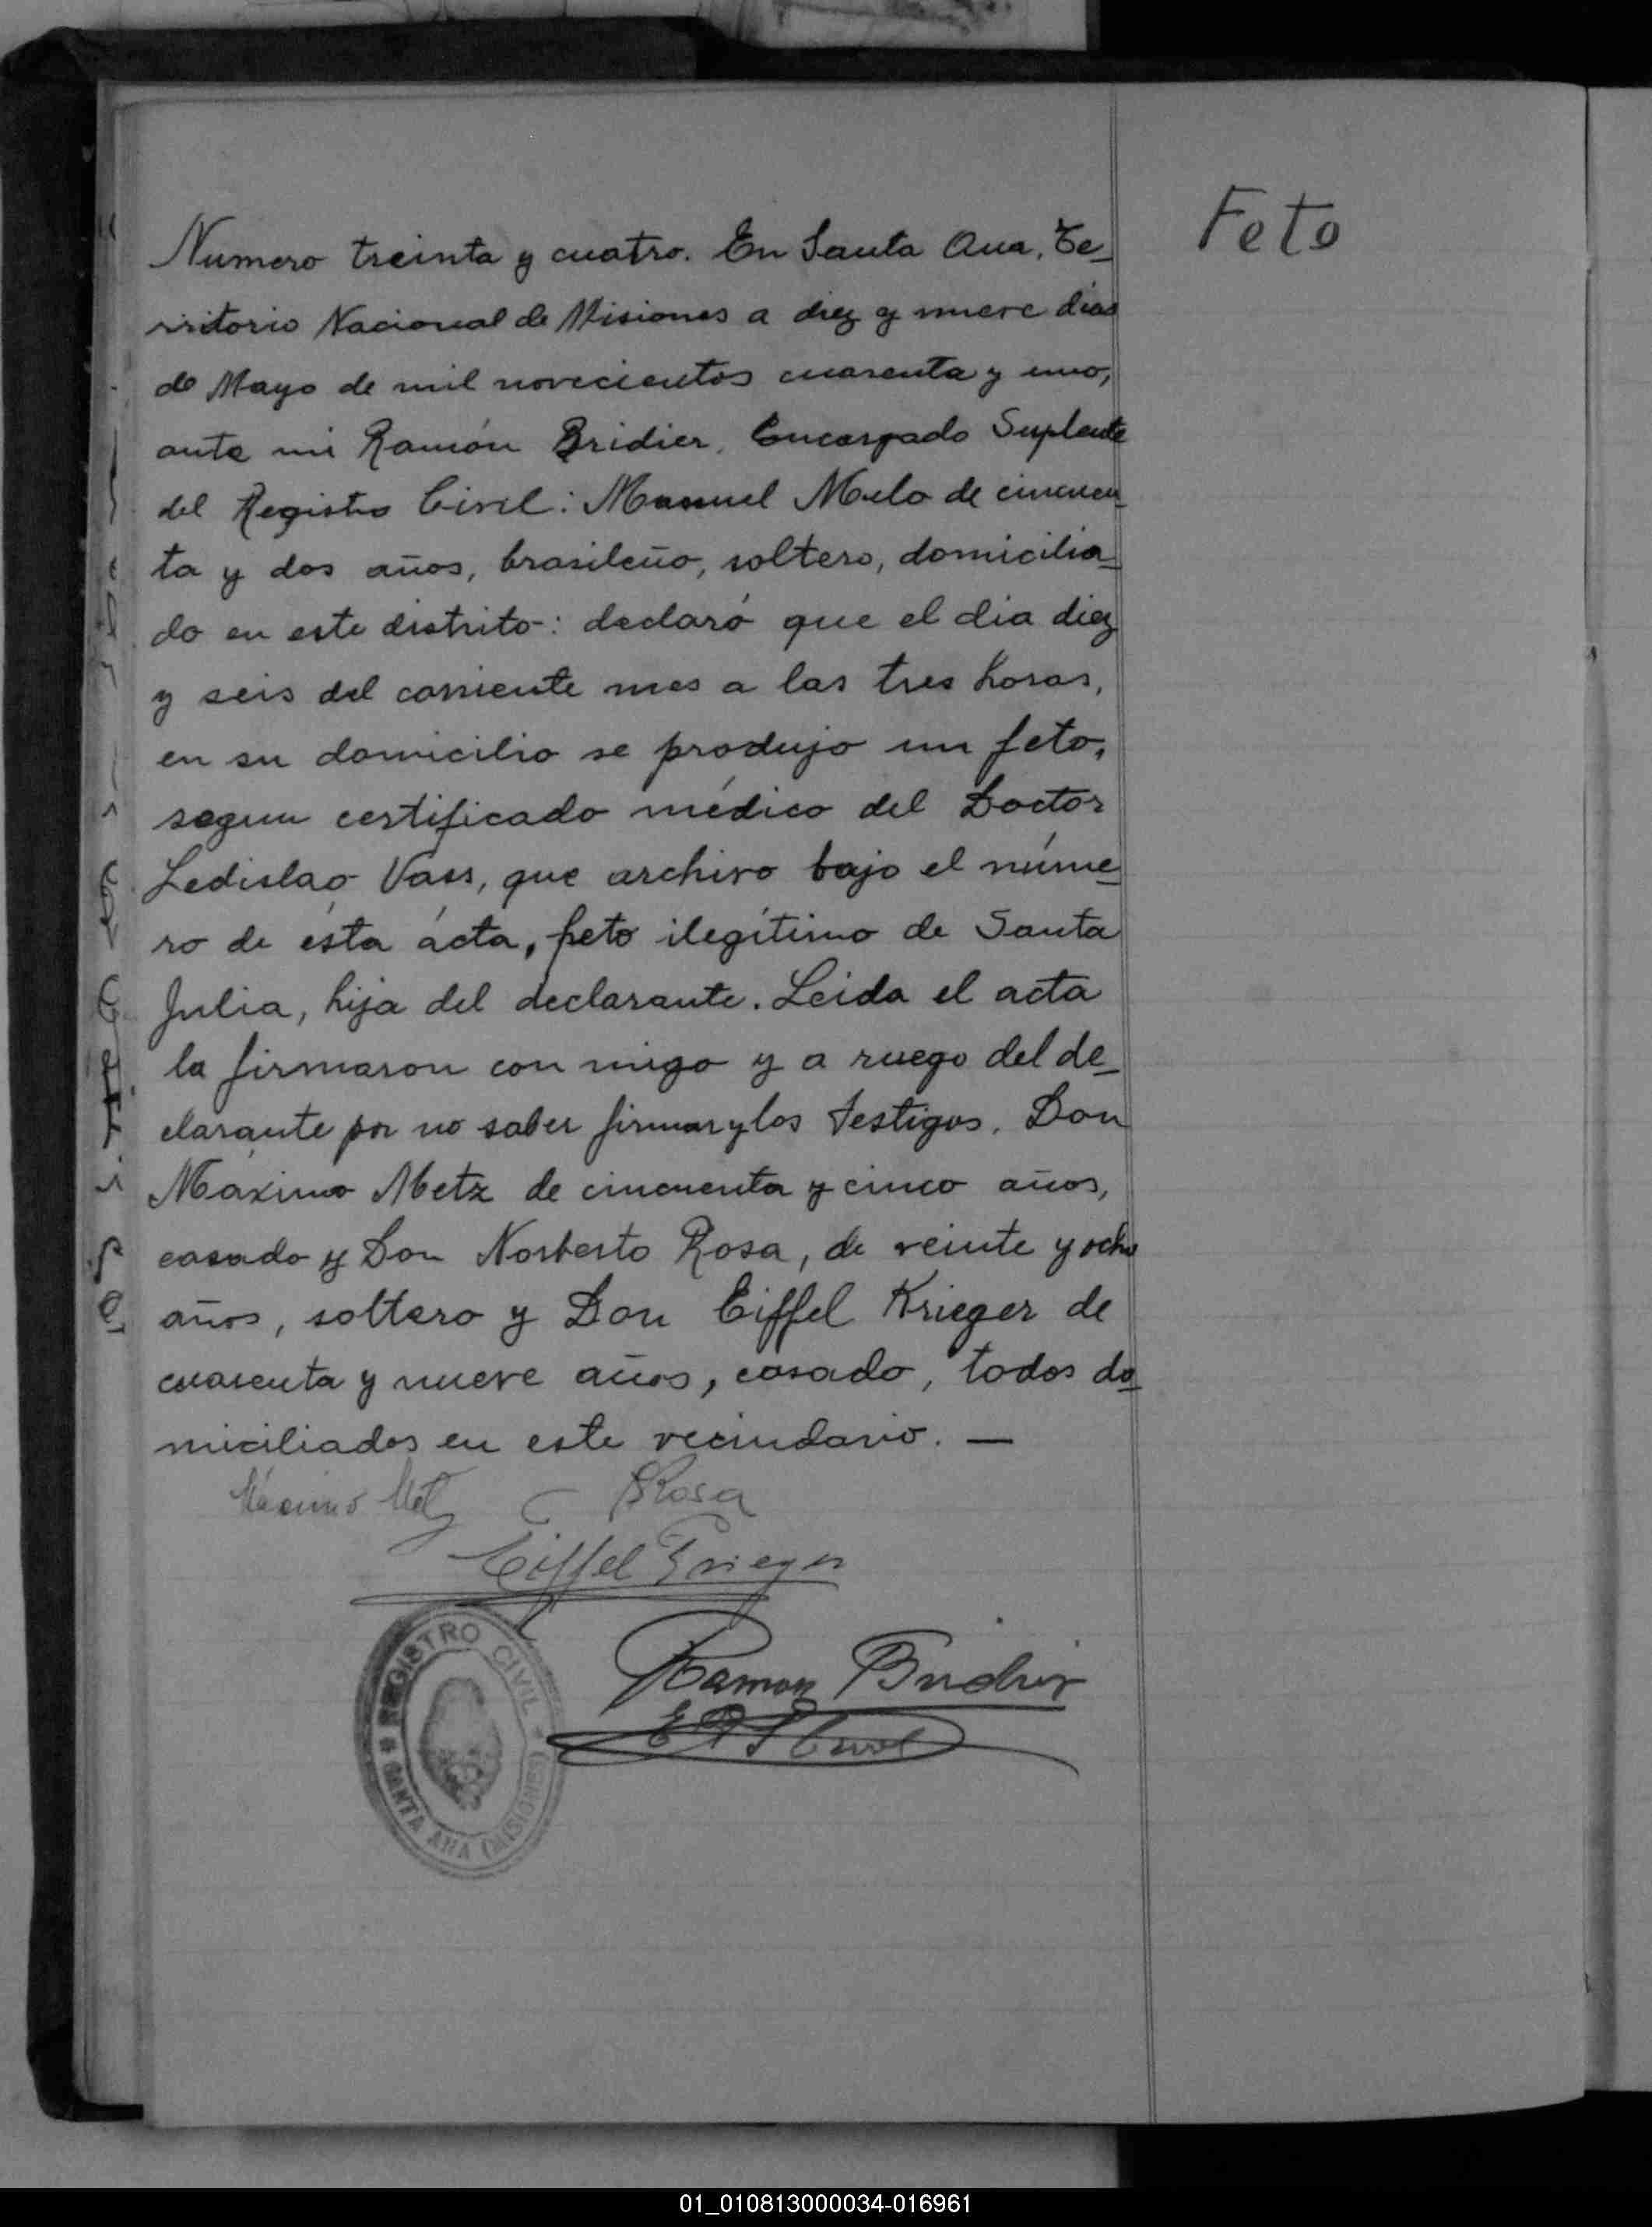 Feto
Numero treinta y cuatro. En Santa Ana, Te_
rritorio Nacional de Misiones a diez y nueve dias
de Mayo de mil novecientos cuarenta y uno,
ante mi Ramón Bridier, Encargado Suplente
del Registro Civil: Manuel Melo de cincuen_
ta y dos años, brasileño, soltero, domicilia_
do en este distrito: declaró que el dia diez
y seis del corriente mes a las tres horas,
en su domicilio se produjo un feto,
segun certificado médico del Doctor
Ledislao Vass, que archivo bajo el núme_
ro de ésta ácta, feto ilegítimo de Santa
Julia, hija del declarante. Leida el acta
la firmaron con migo y a ruego del de_
clarante por no saber firmar y los testigos, Don
Máximo Metz de cincuenta y cinco años,
casado y Don Norberto Rosa, de veinte y ocho
años, soltero y Don Eiffel Krieger de
cuarenta y nueve años, casado, todos do_
miciliados en este vecindario. —
Máximo Metz Rosa
Eiffel Krieger
Ramon Bridier
REGISTRO CIVIL
SANTA ANA (MISIONES)
01_010813000034-016961